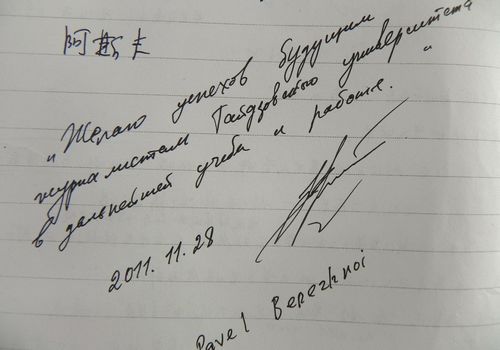 阿誓夫
"Желаю успехов будущим
журналистам Гайдзовстого университета
в дальнейшей учебе и работе."
2011.11.28
Pavel Berezhnoi